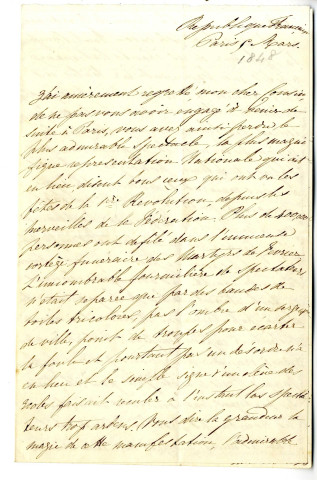 République Française
Paris 5 Mars.
1848
J'ai amèrement regretté mon cher cousin
de ne pas vous avoir engagé à venir de
suite à Paris, vous avez ainsi perdu le
plus admirable spectacle, la plus magni
fique représentation Nationale qui ait
eu lieu, disent tous ceux qui ont vu les
fêtes de la 1ère Révolution, depuis les
merveilles de la Fédération. Plus de 400000
personnes ont défilé dans l'immense
cortège funéraire des Martyrs de Février
L'innombrable fourmilière de spectateurs
n'était séparée que par des bandes de
toiles tricolores; pas l'ombre d'un sergent
de ville, point de troupes pour écarter
la foule et pourtant pas un désordre n'a
eu lieu et le simple signe d'un élève des
Ecoles faisait reculer à l'instant les specta
teurs trop ardens. Vous dire la grandeur la
magie de cette manifestation, l'admirable